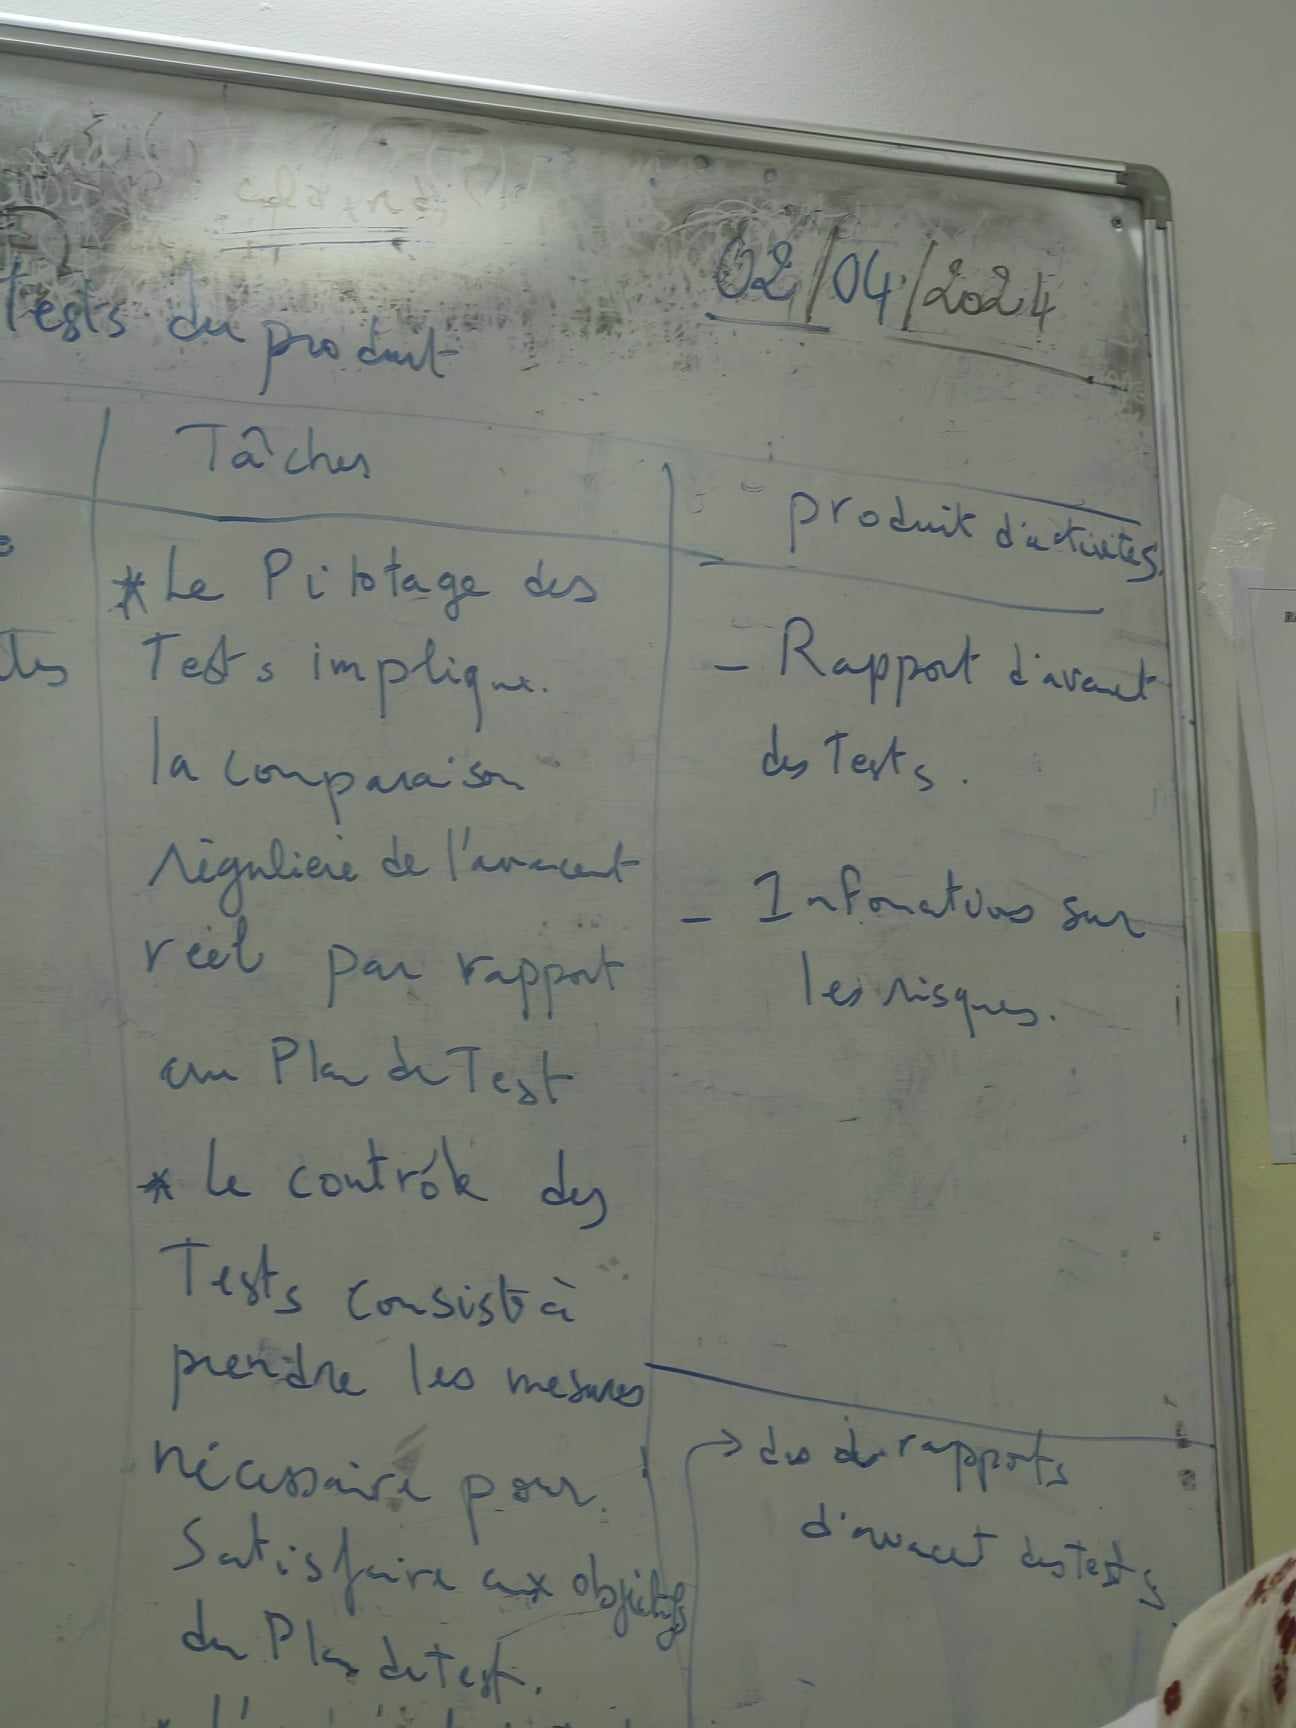 02/04/2024
tests du produit
Tâches
produit d'activités
* Le Pilotage des
Tests implique
la comparaison
régulière de l'avancent
réel par rapport
au Plan de Test
* Le contrôle des
Tests consist à
prendre les mesures
nécessaire pour
Satisfaire aux objectifs
du Plan de test.
- Rapport d'avancet
des Tests.
- Informations sur
les risques.
→ des rapports
d'avancet des tests